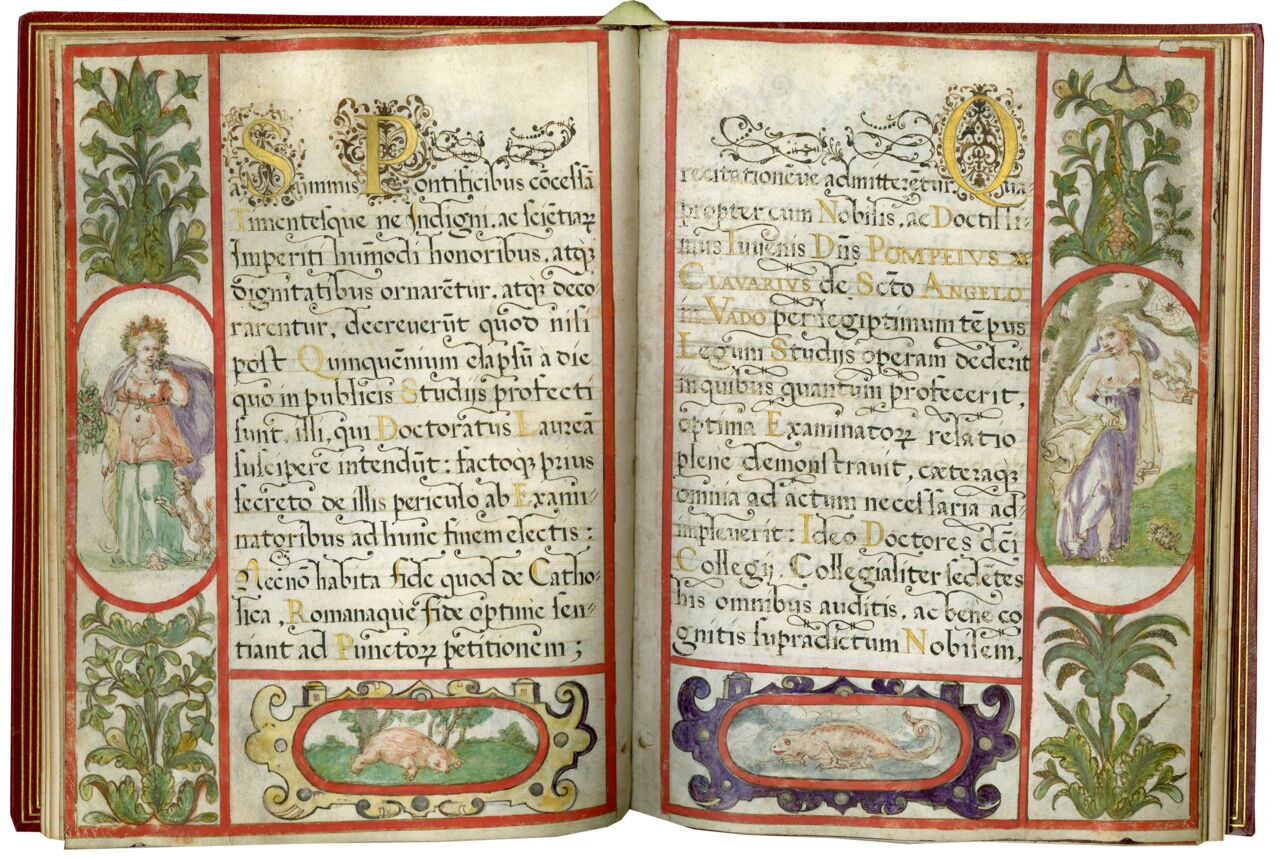 a Summis Pontificibus cōcessā
Timentesque ne Indigni, ac scientiaꝝ
Imperiti hum̄odi honoribus, atq̄
dignitatibus ornarētur, atq̄ deco
rarentur, decreuerūt quod nisi
post Quinquēnium elapsū à die
quo in publicis Studijs profecti
sunt, illi, qui Doctoratus Laureā
suscipere intendūt: factoq̄ prius
secreto de illis periculo ab Exami-
natoribus ad hunc finem electis:
Necnō habita fide quod de Catho-
lica, Romanaque fide optime sen-
tiant ad Punctoꝝ petitionem;
recitationēve admitterētur. Qua
propter cum Nobilis, ac Doctissi-
mus Iuuenis Dn̄s POMPEIVS
CLAVARIVS de Scto ANGELO
in VADO per legiptimum tēpus
Legum Studijs operam dederit
in quibus quantum profecerit,
optima Examinatoꝝ relatio
plene demonstrauit, cæteraq̄
omnia ad actum necessaria ad-
impleuerit: Ideo Doctores dcī
Collegij, Collegialiter sedētes
his omnibus auditis, ac bene co
gnitis supradictum Nobilem,